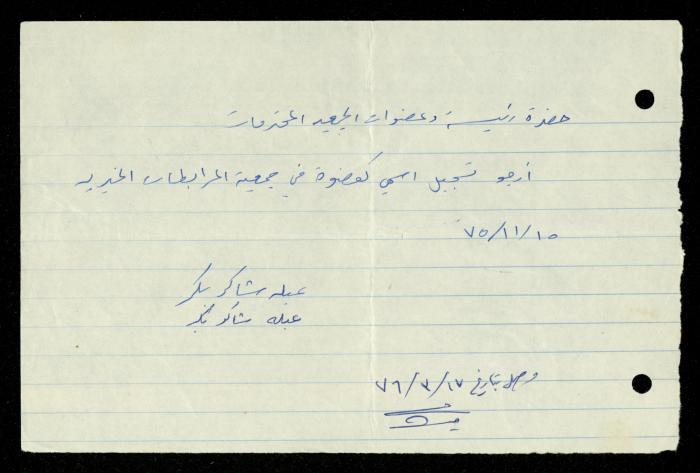 حضرة رئيسة وعضوات الجمعية المحترمات
أرجو تسجيل اسمي كعضوة في جمعية المرابطات الخيرية
٧٥/١١/١٥
عبله شاكر بكر
عبله شاكر بكر
وصل بتاريخ ٧٦/٣/١٧